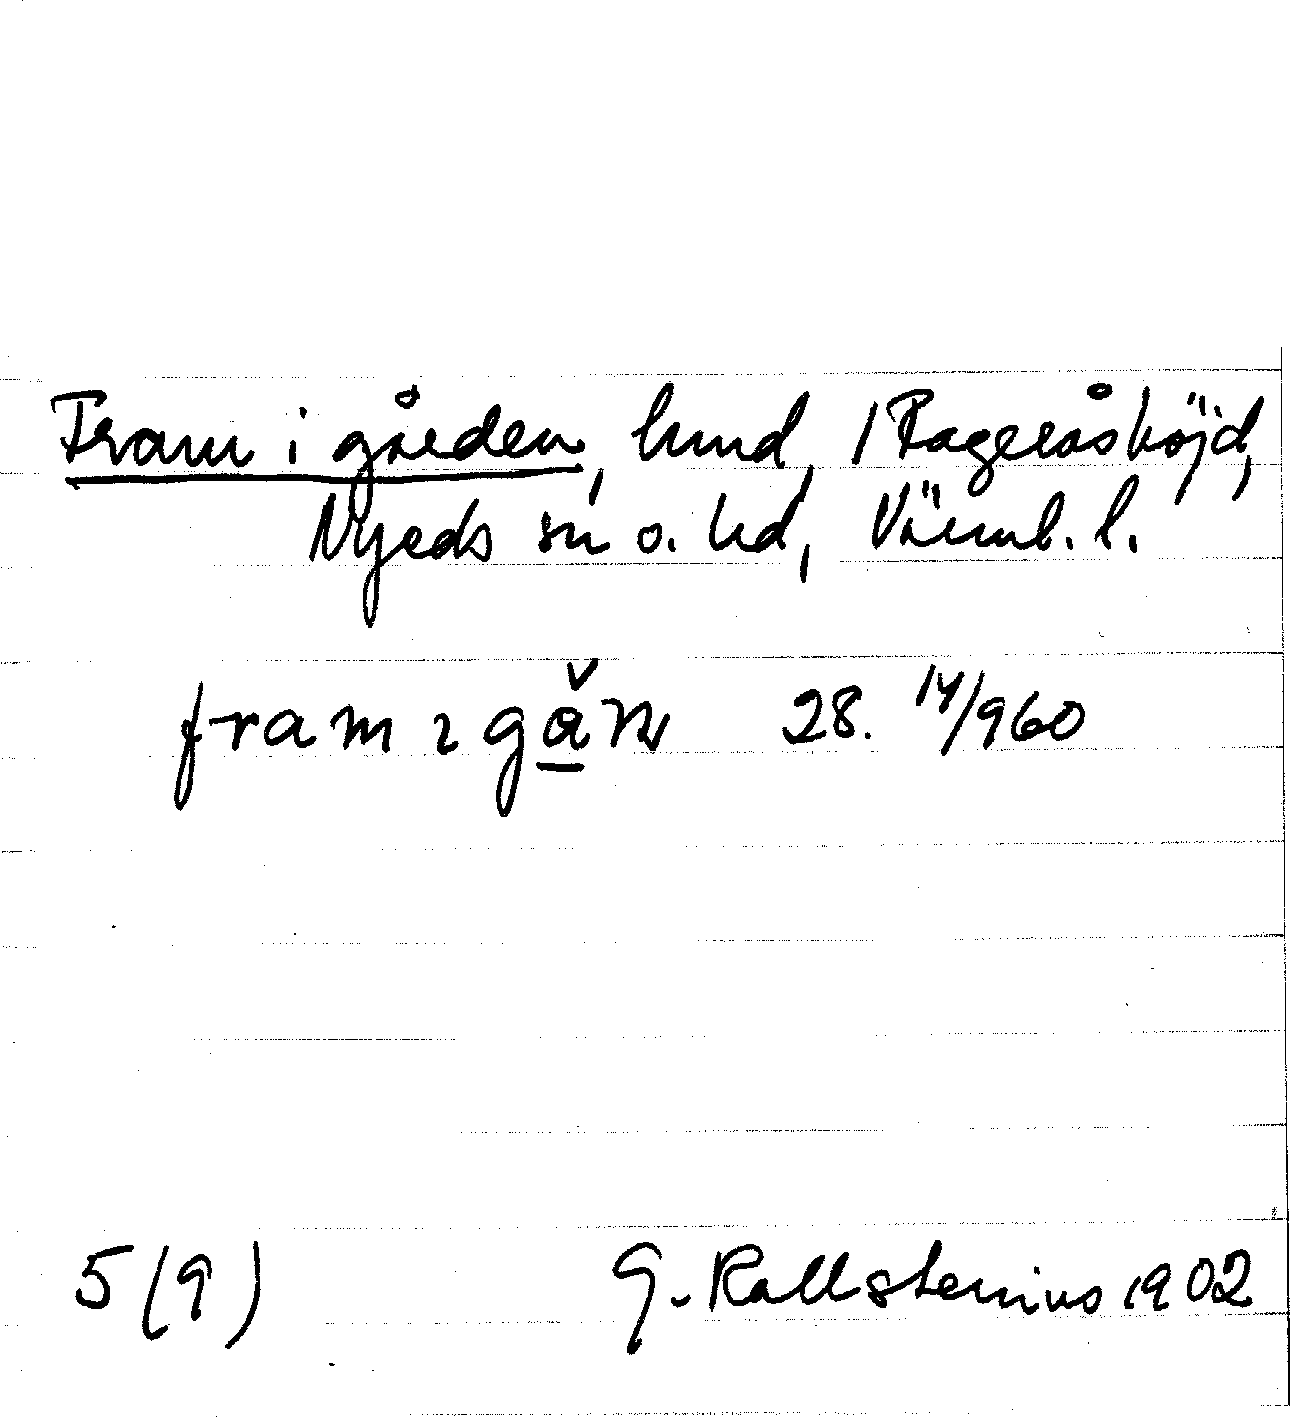 Fram i gården, lund, 1 Rageråshöjd,
Nyeds sn o. hd, Värml. l.
28. 14/960
5 (9) G. Kallstenius 1902